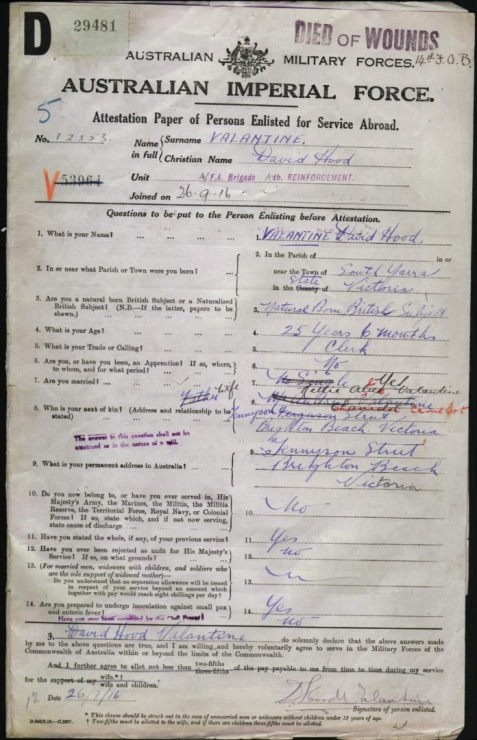 D
29481
DIED OF WOUNDS
AUSTRALIAN MILITARY FORCES.
AUSTRALIAN IMPERIAL FORCE.
5
Attestation Paper of Persons Enlisted for Service Abroad.
No. Name in full { Surname VALANTINE.
Christian Name David Hood
V 53964
Unit A/F.A. Brigade REINFORCEMENT.
Joined on 26-9-16
Questions to be put to the Person Enlisting before Attestation.
1. What is your Name? ... ... ... 1. VALANTINE David Hood.
2. In or near what Parish or Town were you born? ... 2. In the Parish of in or
near the Town of South Yarra
State
in the County of Victoria
3. Are you a natural born British Subject or a Naturalized
British Subject? (N.B.—If the latter, papers to be
shown.) 3. Natural Born British Subject
4. What is your Age? ... ... ... 4. 25 Years 6 months
5. What is your Trade or Calling? ... ... 5. Clerk
6. Are you, or have you been, an Apprentice? If so, where,
to whom, and for what period? ... 6. No
7. Are you married? ... ... ... 7. No Single Yes
8. Who is your next of kin? (Address and relationship to be
stated) Father Wife 8. Alice Valantine
Tennyson Street
Brighton Beach. Victoria
The answer to this question shall not be
construed as in the nature of a will.
9. What is your permanent address in Australia? ... 9. Tennyson Street
Brighton Beach
Victoria
10. Do you now belong to, or have you ever served in, His
Majesty's Army, the Marines, the Militia, the Militia
Reserve, the Territorial Force, Royal Navy, or Colonial
Forces? If so, state which, and if not now serving,
state cause of discharge ... ... 10. No
11. Have you stated the whole, if any, of your previous service? 11. Yes
12. Have you ever been rejected as unfit for His Majesty's
Service? If so, on what grounds? ... 12. no
13. (For married men, widowers with children, and soldiers who
are the sole support of widowed mother)—
Do you understand that no separation allowance will be issued
in respect of your service beyond an amount which
together with pay would reach eight shillings per day? 13.
14. Are you prepared to undergo inoculation against small pox
and enteric fever? ... ... 14. Yes
Have you ever been convicted by the Civil Power? no
I, David Hood Valantine do solemnly declare that the above answers made
by me to the above questions are true, and I am willing and hereby voluntarily agree to serve in the Military Forces of the
Commonwealth of Australia within or beyond the limits of the Commonwealth.
And I further agree to allot not less than two-fifths three-fifths of the pay payable to me from time to time during my service
for the support of my wife.*†
wife and children.
12 Date 26/9/16 D Hood Valantine
Signature of person enlisted.
* This clause should be struck out in the case of unmarried men or widowers without children under 18 years of age.
† Two-fifths must be allotted to the wife, and if there are children three-fifths must be allotted.